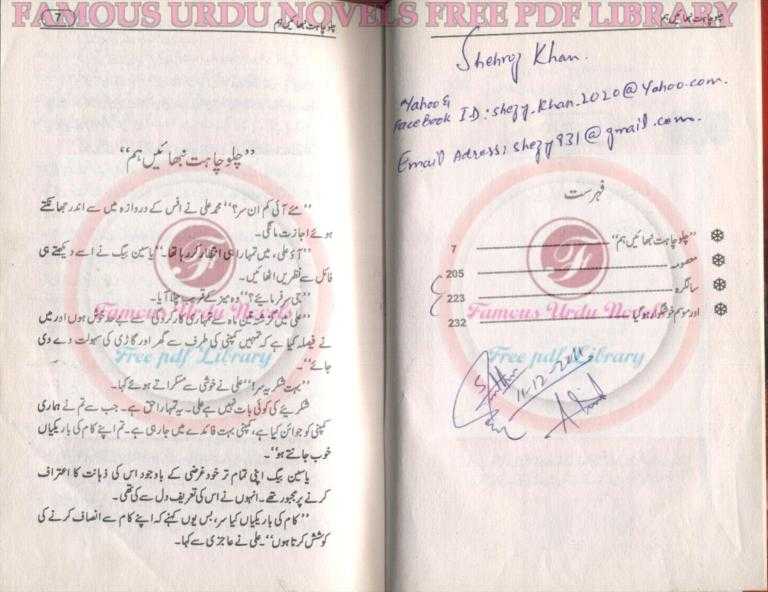 FAMOUS URDU NOVELS FREE PDF LIBRARY
چلو چاہت نبھائیں ہم
Shehroz Khan.
Yahoo &
FaceBook ID: shezy.khan.2020@Yahoo.com.
Email Adress: shezy931@gmail.com.
فہرست
"چلو چاہت نبھائیں ہم" 7
معصومہ 205
سالگرہ 223
اور موسم خوشگوار ہو گیا 232
Famous Urdu Novels
Free pdf Library
11-12-2011
7
چلو چاہت نبھائیں ہم
"چلو چاہت نبھائیں ہم"
"مے آئی کم ان سر؟" محمد علی نے آفس کے دروازہ میں سے اندر جھانکتے
ہوئے اجازت مانگی۔
"آؤ علی، میں تمہارا ہی انتظار کر رہا تھا۔" یاسین بیگ نے اسے دیکھتے ہی
فائل سے نظریں اٹھائیں۔
"جی سر فرمایئے؟" وہ میز کے قریب چلا آیا۔
"علی میں گزشتہ تین ماہ سے تمہاری کارکردگی سے بے حد خوش ہوں اور میں
نے فیصلہ کیا ہے کہ تمہیں کمپنی کی طرف سے گھر اور گاڑی کی سہولت دے دی
جائے"۔
"بہت شکریہ سر!" علی نے خوشی سے مسکراتے ہوئے کہا۔
شکریے کی کوئی بات نہیں ہے علی۔ یہ تمہارا حق ہے۔ جب سے تم نے ہماری
کمپنی کو جوائن کیا ہے، کمپنی بہت فائدے میں جا رہی ہے۔ تم اپنے کام کی باریکیاں
خوب جانتے ہو"۔
یاسین بیگ اپنی تمام تر خود غرضی کے باوجود اس کی ذہانت کا اعتراف
کرنے پر مجبور تھے۔ انہوں نے اس کی تعریف دل سے کی تھی۔
"کام کی باریکیاں کیا سر، بس یوں کہئے کہ اپنے کام سے انصاف کرنے کی
کوشش کرتا ہوں"۔ علی نے عاجزی سے کہا۔
Famous Urdu Novels
Free pdf Library